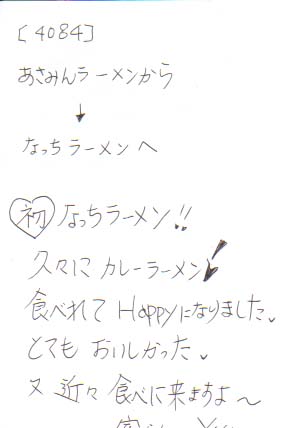 [4084]
あさみんラーメンから
↓
なっちラーメンへ
初 なっちラーメン!!
久々に カレーラーメン!
食べれて Happyになりました。
とても おいしかった。
又 近々 食べに来ますよ〜